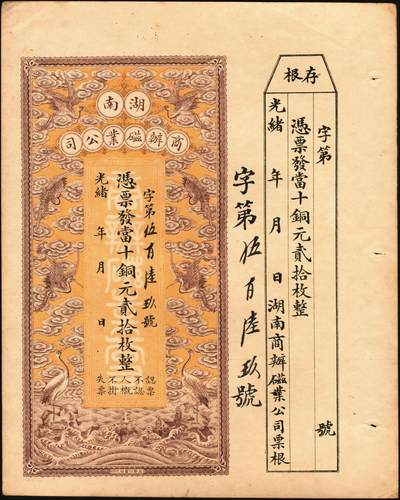 湖南
商辦磁業公司
字第伍百陸玖號
憑票發當十銅元貳拾枚整
光緒 年 月 日
認票不認人概不掛失票
字第伍百陸玖號
存根
字第 號
憑票發當十銅元貳拾枚整
光緒 年 月 日湖南商辦磁業公司票根